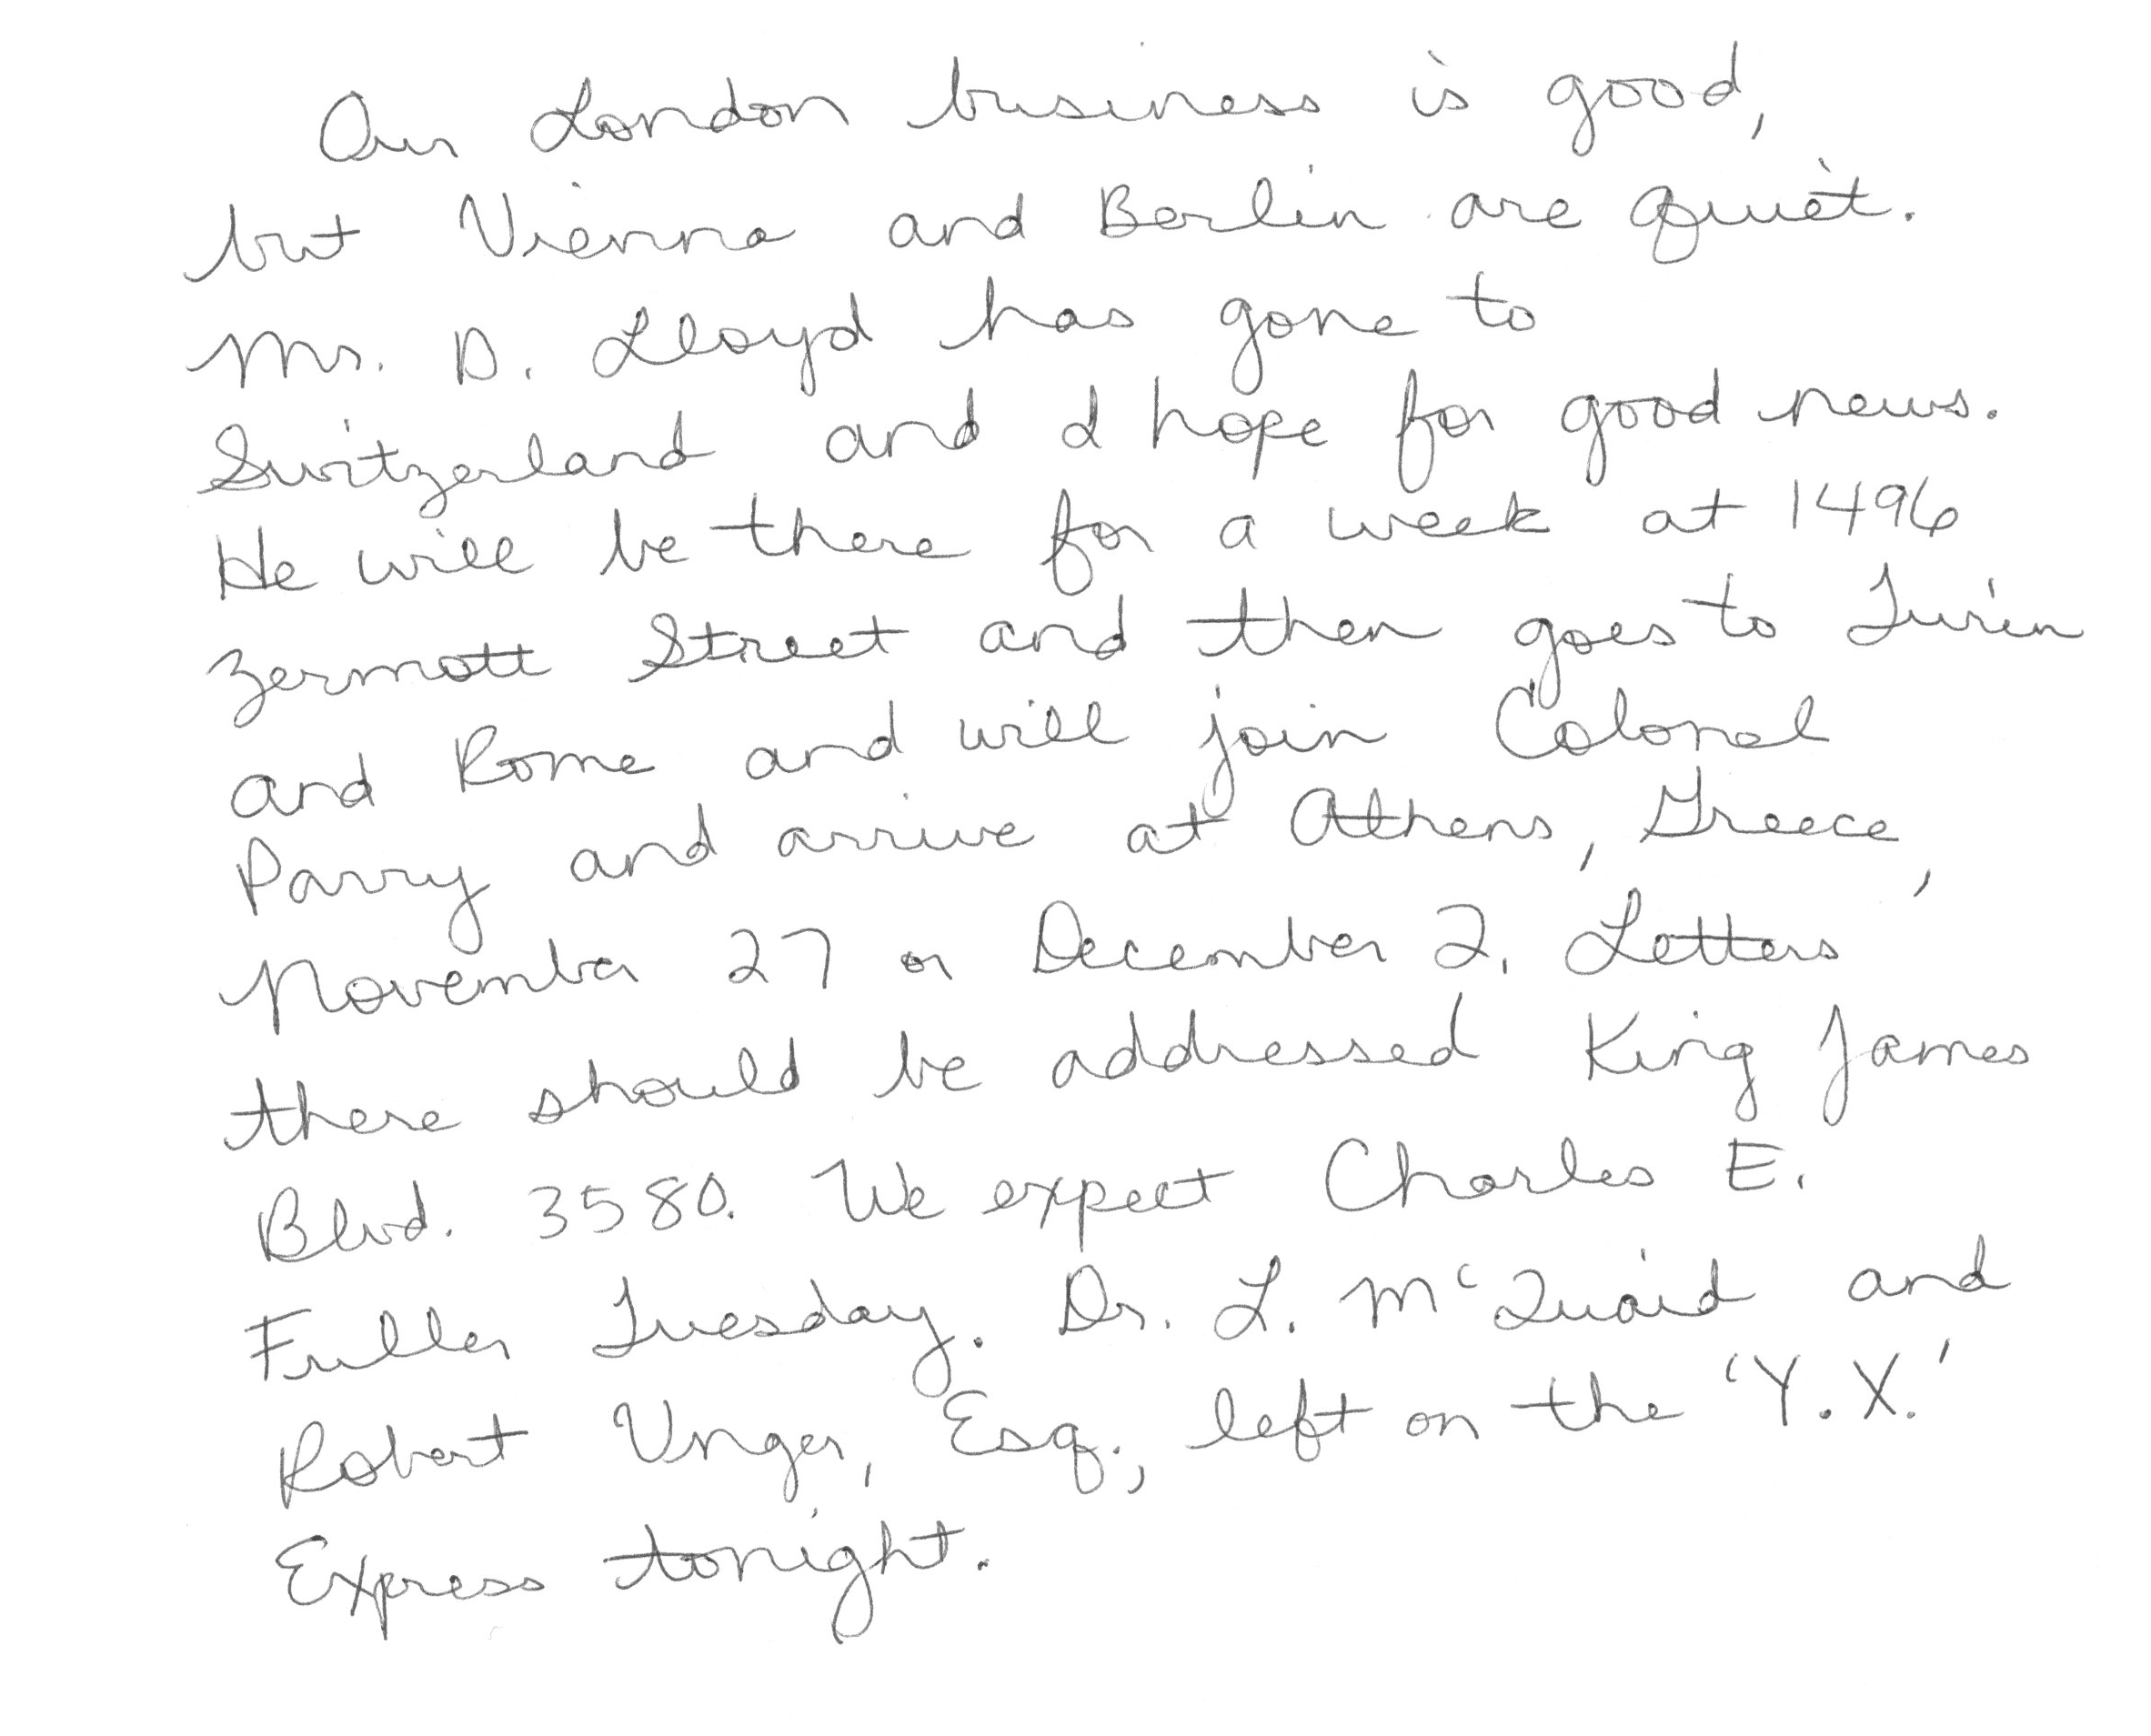 Our London business is good,
but Vienna and Berlin are quiet.
Mr. D. Lloyd has gone to
Switzerland and I hope for good news.
He will be there for a week at 1496
Zermott Street and then goes to Turin
and Rome and will join Colonel
Parry and arrive at Athens, Greece,
November 27 or December 2. Letters
there should be addressed King James
Blvd. 3580. We expect Charles E.
Fuller Tuesday. Dr. L. McQuaid and
Robert Unger, Esq., left on the 'Y.X.'
Express tonight.